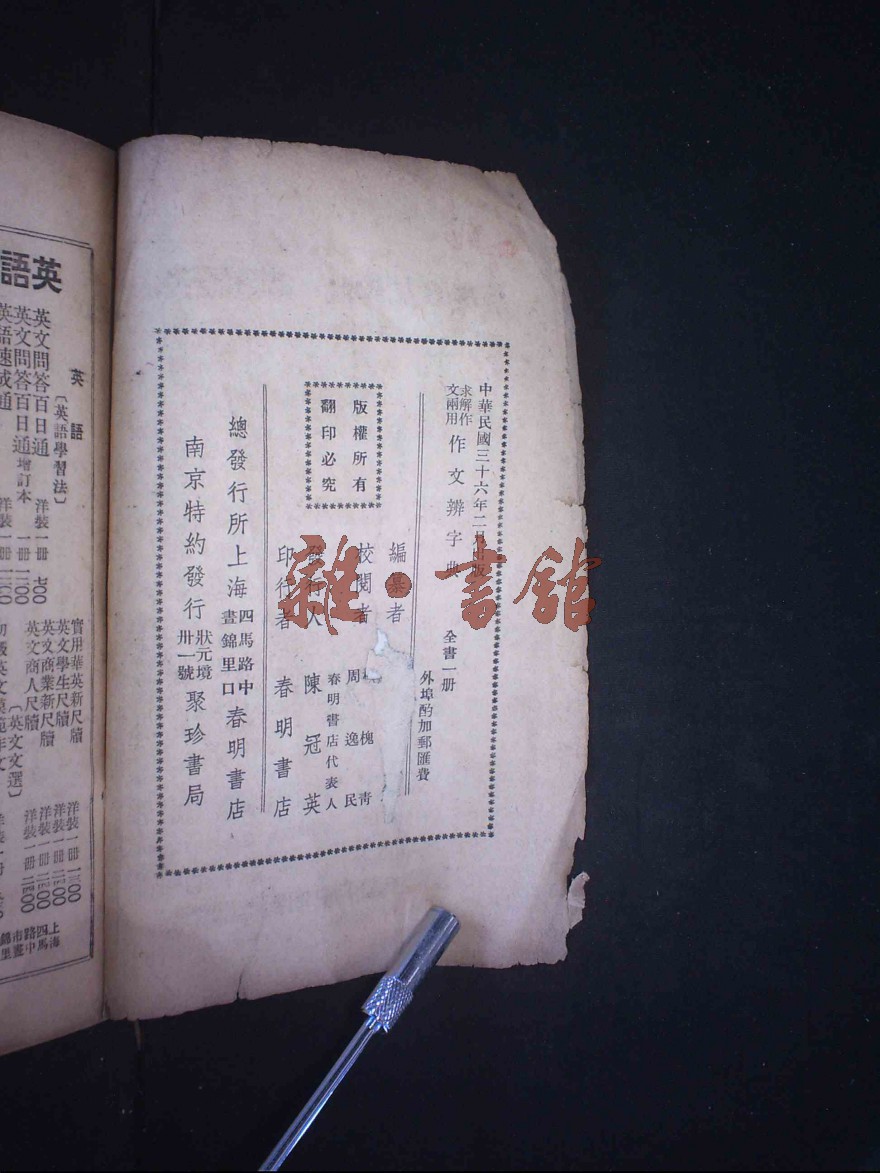 中華民國三十六年二月出版
求解作文兩用 作文辨字典
全書一册
外埠酌加郵匯費
版權所有
翻印必究
編纂者
校閱者 槐青
周逸民
發行人 春明書店代表人 陳冠英
印行者 春明書店
總發行所 上海 四馬路中晝錦里口 春明書店
南京特約發行 狀元境卅一號 聚珍書局
雜·書館
英語
英語
〔英語學習法〕
英文問答百日通 洋裝一冊
英文問答百日通增訂本 洋裝一冊
英語速成通
實用華英新尺牘 洋裝一冊
英文學生尺牘 洋裝一冊
英文商業新尺牘 洋裝一冊
英文商人尺牘 洋裝一冊
〔英文文選〕
上海四馬路中市晝錦里